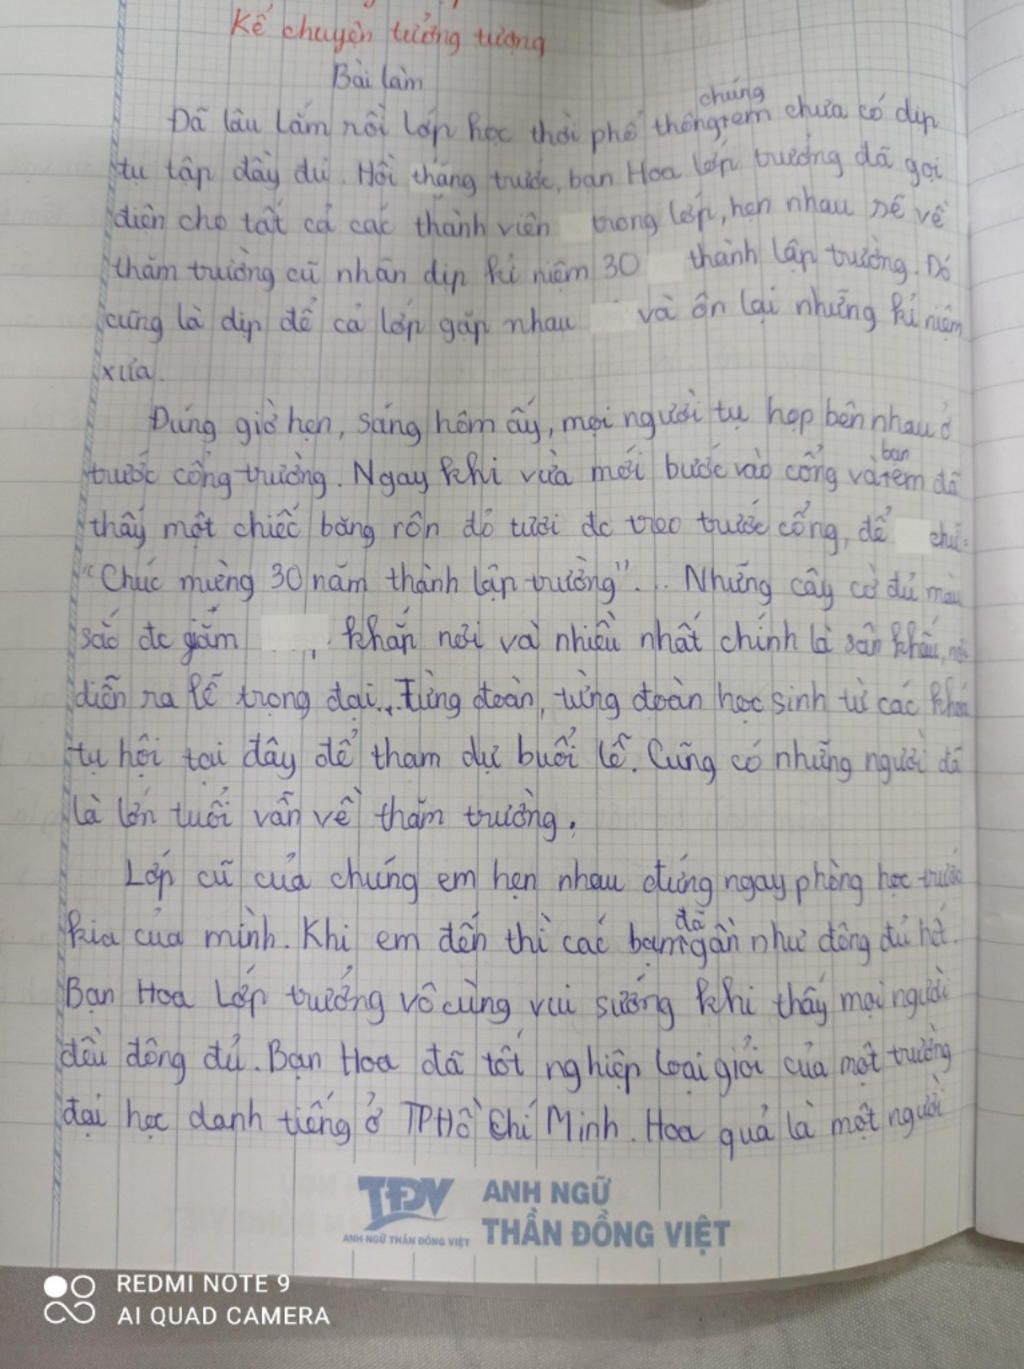 Kể chuyện tưởng tượng
Bài làm
chúng
Đã lâu lắm rồi lớp học thời phổ thông em chưa có dịp
tụ tập đầy đủ. Hồi tháng trước, bạn Hoa lớp trưởng đã gọi
điện cho tất cả các thành viên trong lớp, hẹn nhau sẽ về
thăm trường cũ nhân dịp kỉ niệm 30 thành lập trường. Đó
cũng là dịp để cả lớp gặp nhau và ôn lại những kỉ niệm
xưa.
Đúng giờ hẹn, sáng hôm ấy, mọi người tụ họp bên nhau ở
trước cổng trường. Ngay khi vừa mới bước vào cổng và em đã
bạn
thấy một chiếc băng rôn đỏ tươi đc treo trước cổng, để chữ:
"Chúc mừng 30 năm thành lập trường"... Những cây cờ đủ màu
sắc đc giắm , khắp nơi và nhiều nhất chính là sân khấu, nơi
diễn ra lễ trọng đại. Từng đoàn, từng đoàn học sinh từ các khóa
tụ hội tại đây để tham dự buổi lễ. Cũng có những người đã
là lớn tuổi vẫn về thăm trường.
Lớp cũ của chúng em hẹn nhau đứng ngay phòng học trước
kia của mình. Khi em đến thì các bạn gần như đông đủ hết.
đã
Bạn Hoa lớp trưởng vô cùng vui sướng khi thấy mọi người
đều đông đủ. Bạn Hoa đã tốt nghiệp loại giỏi của một trường
đại học danh tiếng ở TP Hồ Chí Minh. Hoa quả là một người
TĐV ANH NGỮ
ANH NGỮ THẦN ĐỒNG VIỆT THẦN ĐỒNG VIỆT
REDMI NOTE 9
AI QUAD CAMERA